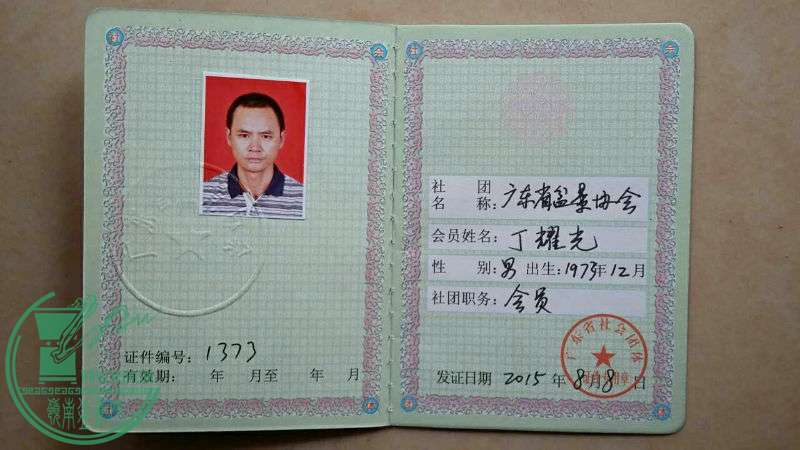 证件编号：1373
有效期： 年 月至 年 月
社团
名称：广东省盆景协会
会员姓名：丁耀光
性别：男 出生：1973年12月
社团职务：会员
发证日期 2015年8月8日
广东省社会团体